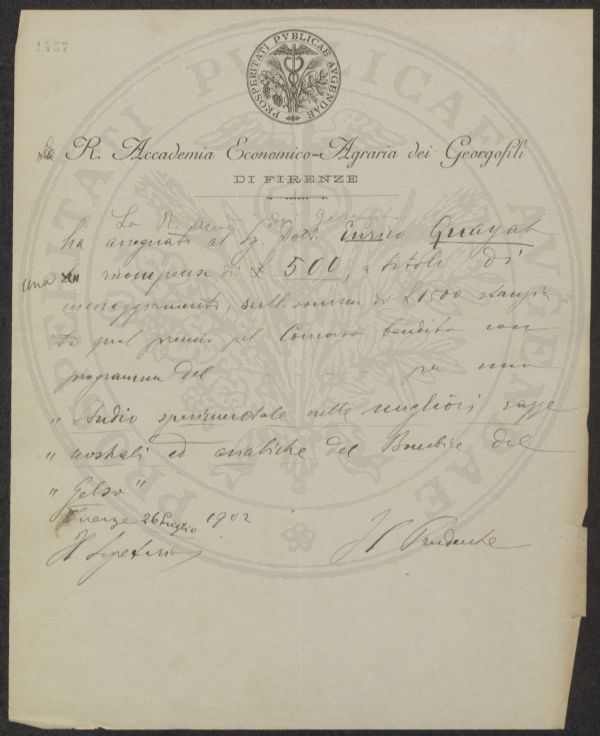 1457
PROSPERITATI PVBLICAE AVGENDAE
La R. Accademia Economico-Agraria dei Georgofili
DI FIRENZE
La R. Acc. dei Georgof.
ha assegnato al Sig. Dott. Enrico Quajat
una ricompensa di £ 500, a titolo di
incoraggiamento, sulla somma di £ 1500 stanzia
ta qual premio pel Concorso bandito con
programma del per uno
" Studio sperimentale sulle migliori razze
" nostrali ed asiatiche del Bombice del
" Gelso "
Firenze 26 Luglio 1902
Il Segretario Il Presidente